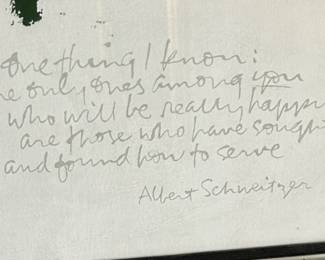 One thing I know:
e only ones among you
who will be really happy
are those who have sought
and found how to serve
Albert Schweitzer